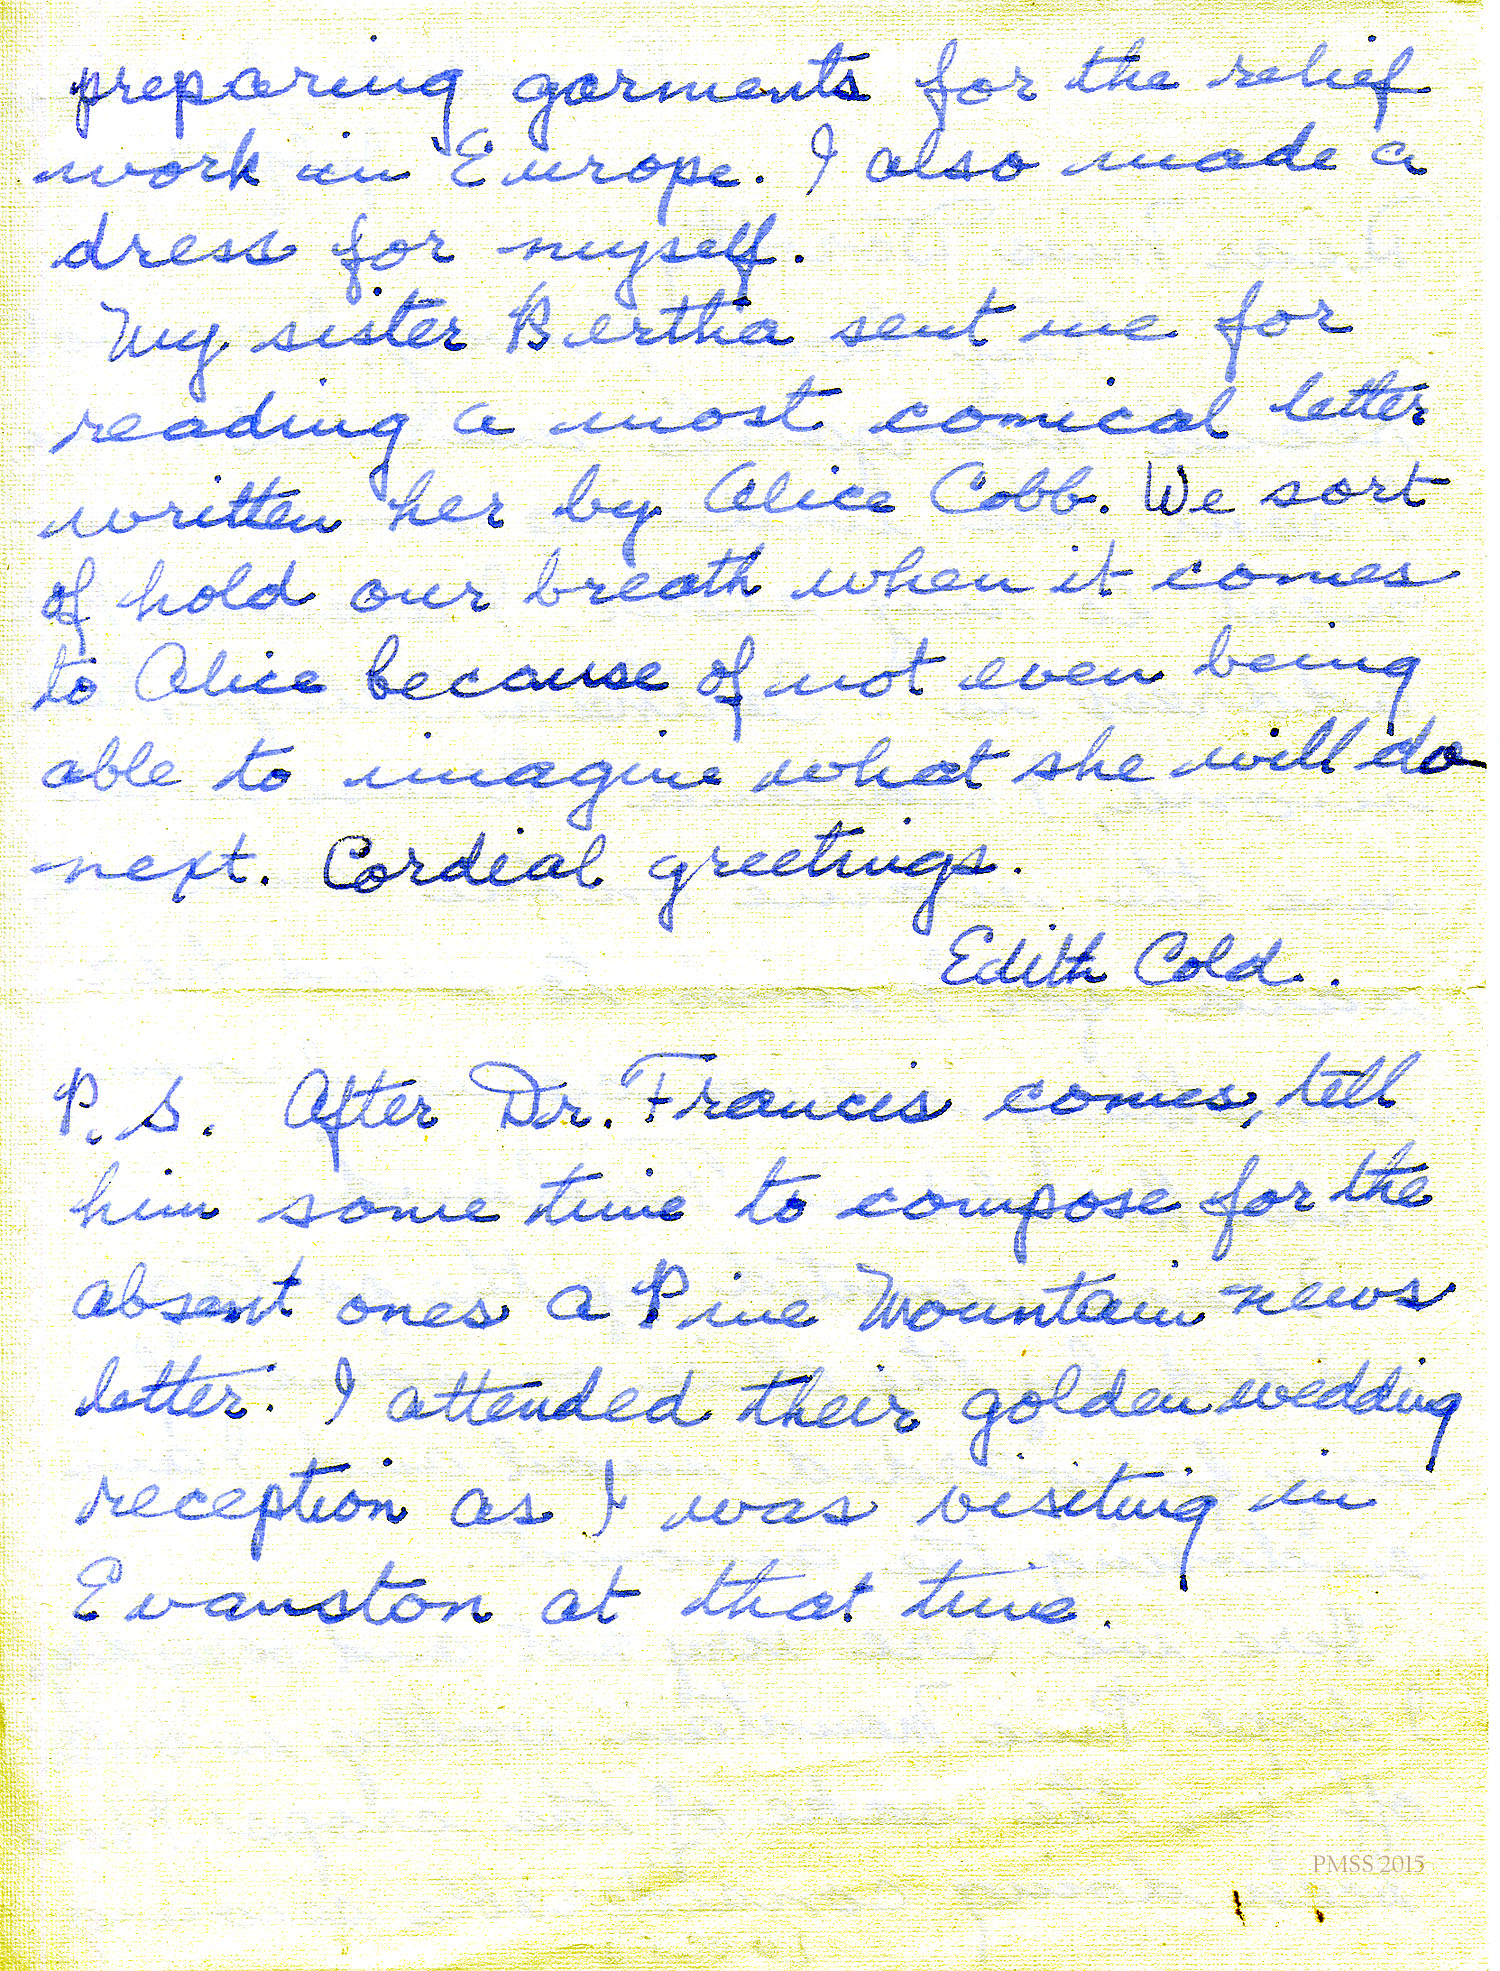 preparing garments for the relief
work in Europe. I also made a
dress for myself.
My sister Bertha sent me for
reading a most comical letter
written her by Alice Cobb. We sort
of hold our breath when it comes
to Alice because of not even being
able to imagine what she will do
next. Cordial greetings.
Edith Cold.
P. S. After Dr. Francis comes, tell
him some time to compose for the
absent ones a Pine Mountain news
letter. I attended their golden wedding
reception as I was visiting in
Evanston at that time.
PMSS 2015